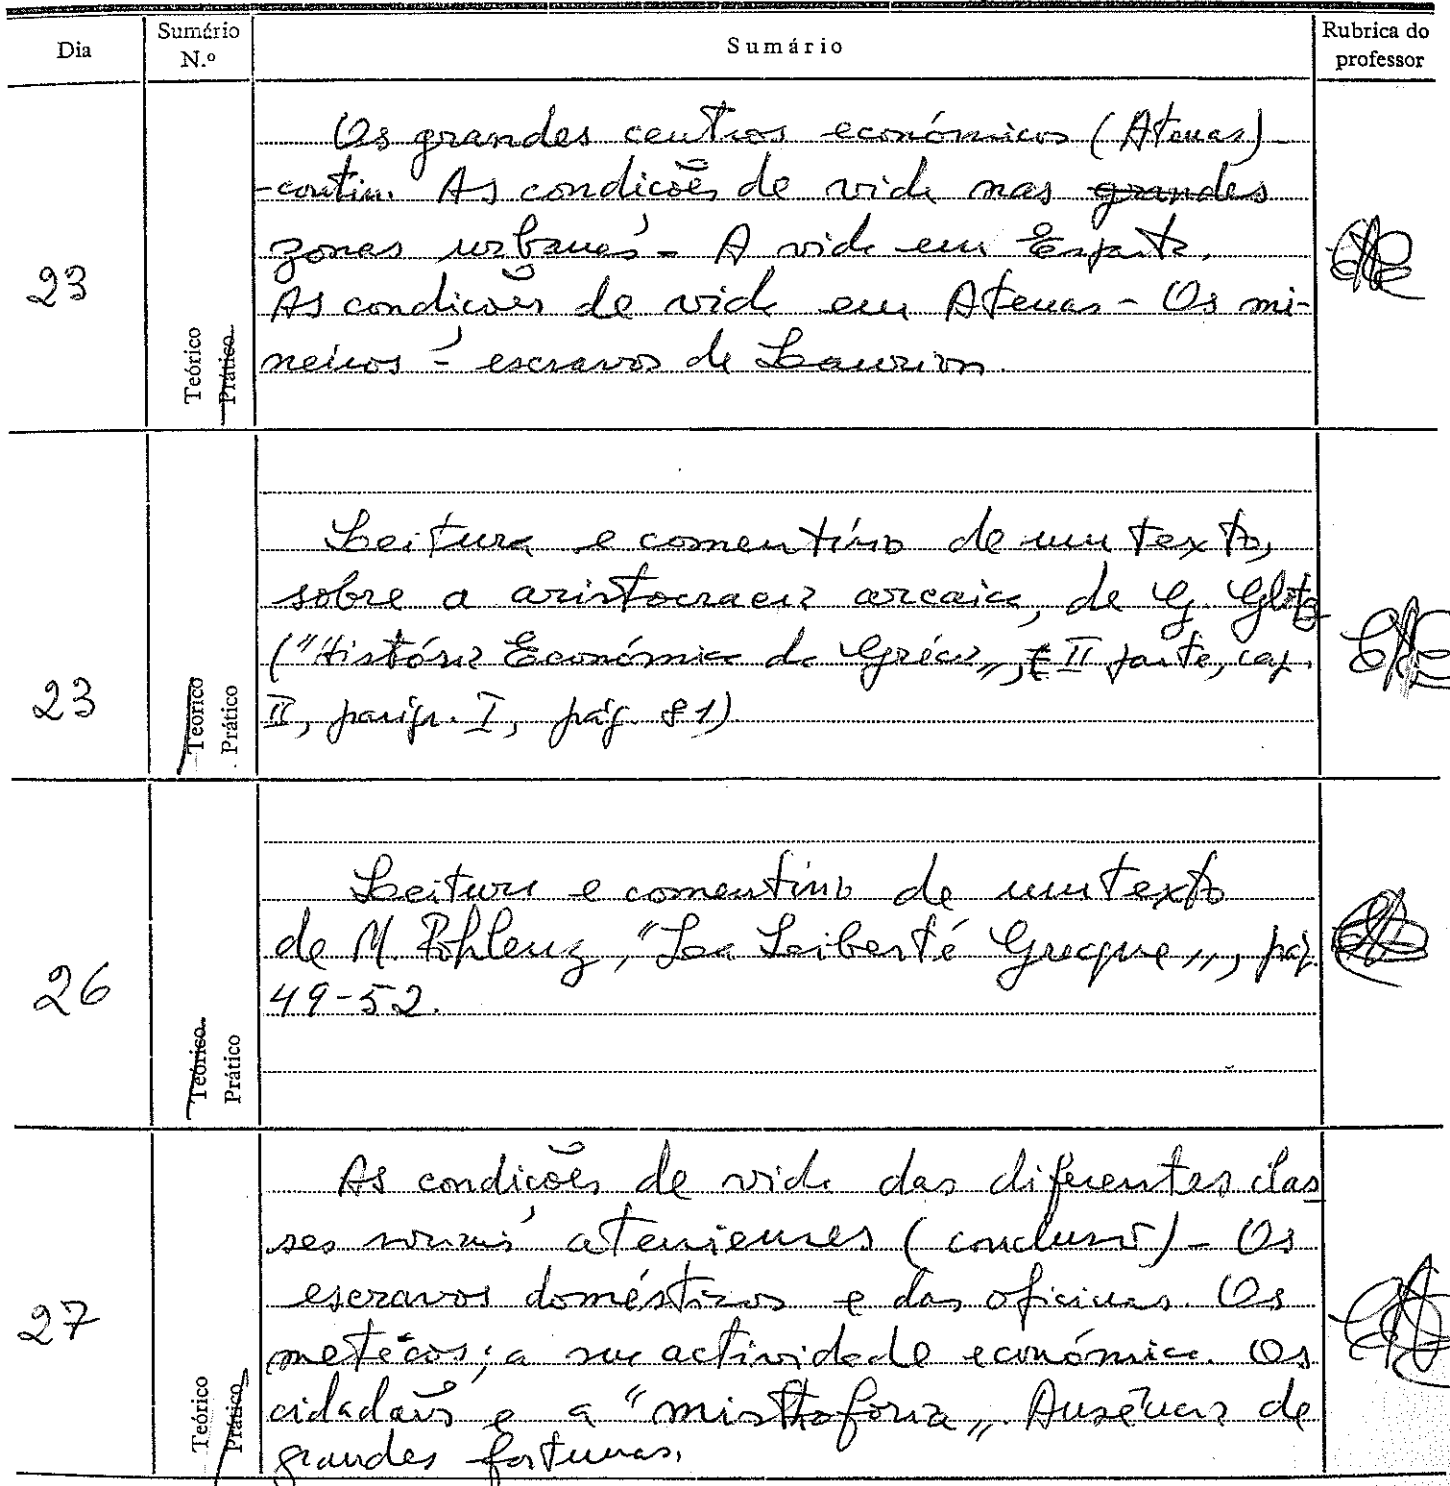 Dia Sumário N.º Sumário Rubrica do professor
23
Teórico Prático
Os grandes centros económicos (Atenas) -
-contin. As condições de vida nas grandes
zonas urbanas - A vida em Esparta.
As condições de vida em Atenas - Os mi-
neiros - escravos de Laurion.
23
Teórico Prático
Leitura e comentário de um texto,
sobre a aristocracia arcaica, de G. Glotz
("História Económica da Grécia", II parte, cap.
II, parágr. I, pág. 81)
26
Teórico Prático
Leitura e comentário de um texto
de M. Pohlenz, "La Liberté Grecque", pág.
49-52.
27
Teórico Prático
As condições de vida das diferentes clas
ses sociais atenienses (conclusão) - Os
escravos domésticos e das oficinas. Os
metécos; a sua actividade económica. Os
cidadãos e a "misthoforia". Ausência de
grandes fortunas.